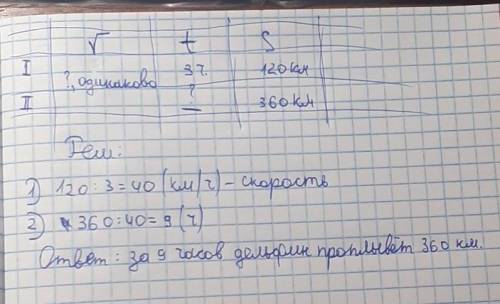 V t S
I ?, одинаково 3ч. 120 км
II ? 360 км
Реш:
1) 120 : 3 = 40 (км/ч) – скорость
2) 360 : 40 = 9 (ч)
Ответ: за 9 часов дельфин проплывёт 360 км.